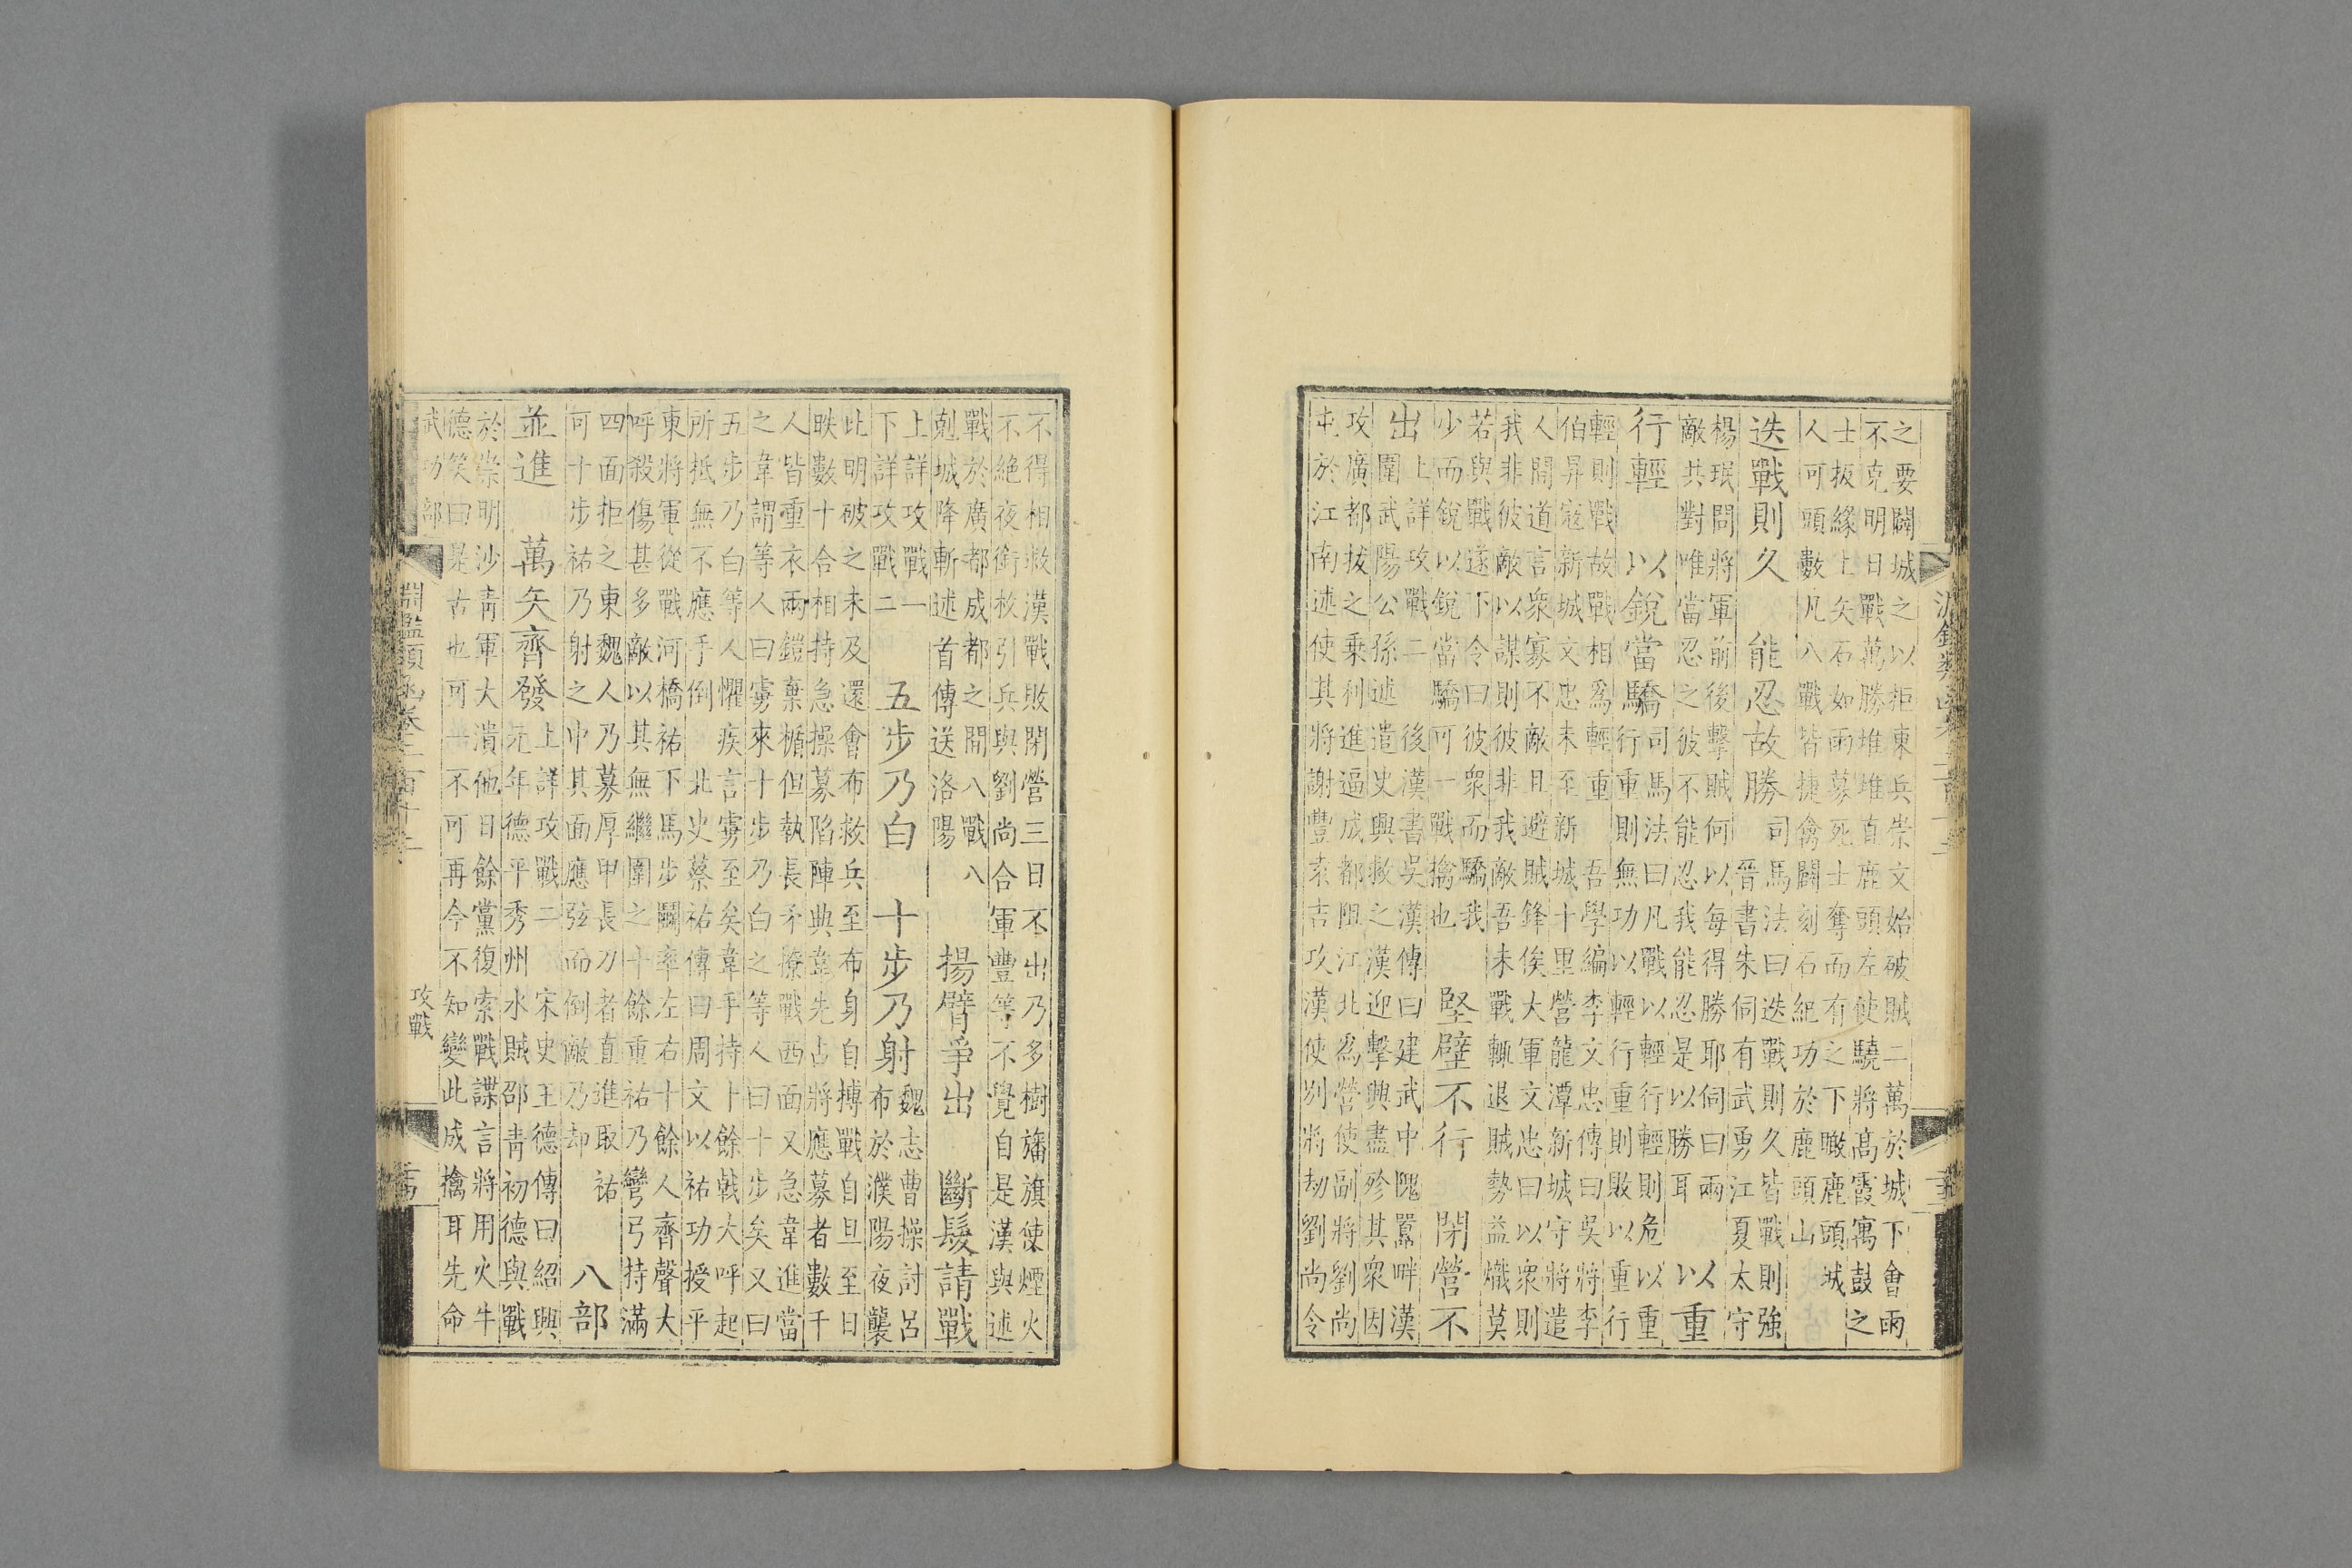 之要闕城之以拒東兵崇文始破賊二萬於城下會雨
不克明日戰萬勝堆堆直鹿頭左使驍將高霞寓鼓之
士扳緣上矢石如雨募死士奪而有之下瞰鹿頭城
人可頭數凡八戰皆捷禽闢刻石紀功於鹿頭山
迭戰則久 能忍故勝 司馬法曰迭戰則久皆戰則強
晉書朱伺有武勇江夏太守
楊珉問將軍前後擊賊何以每得勝耶伺曰兩
敵共對唯當忍之彼不能忍我能忍是以勝耳 以重
行輕 以銳當驕 司馬法曰凡戰以輕行輕則危以重
行重則無功以輕行重則敗以重行
輕則戰故戰相爲輕重 吾學編李文忠傳曰吳將李
伯昇寇新城文忠未至新城十里營龍潭新城守將遣
人間道言衆寡不敵且避賊鋒俟大軍文忠曰以衆則
我非彼敵以謀則彼非我敵吾未戰輒退賊勢益熾莫
若與戰遂下令曰彼衆而驕我
少而銳以銳當驕可一戰擒也 堅壁不行 閉營不
出 上詳攻戰二 後漢書吳漢傳曰建武中隗囂畔漢
圍武陽公孫述遣史興救之漢迎擊興盡殄其衆因
攻廣都拔之乘利進逼成都阻江北爲營使副將劉尚
屯於江南述使其將謝豐袁吉攻漢使別將劫劉尚令
不得相救漢戰敗閉營三日不出乃多樹旛旗使煙火
不絕夜銜枚引兵與劉尚合軍豐等不覺自是漢與述
戰於廣都成都之間八戰八
剋城降斬述首傳送洛陽 揚臂爭出 斷髮請戰
上詳攻戰一
下詳攻戰二 五步乃白 十步乃射 魏志曹操討呂
布於濮陽夜襲
比明破之未及還會布救兵至布身自搏戰自旦至日
昳數十合相持急操募陷陣典韋先占將應募者數千
人皆重衣兩鎧棄楯但執長矛撩戰西面又急韋進當
之韋謂等人曰雱來十步乃白之等人曰十步矣又曰
五步乃白等人懼疾言雱至矣韋手持十餘戟大呼起
所抵無不應手倒 北史蔡祐傳曰周文以祐功授平
東將軍從戰河橋祐下馬步鬬率左右十餘人齊聲大
呼殺傷甚多敵以其無繼圍之十餘重祐乃彎弓持滿
四面拒之東魏人乃募厚甲長刀者直進取祐
可十步祐乃射之中其面應弦而倒敵乃却 八部
並進 萬矢齊發 上詳攻戰二 宋史王德傳曰紹興
元年德平秀州水賊邵青初德與戰
於崇明沙青軍大潰他日餘黨復索戰諜言將用火牛
德笑曰是古也可一不可再今不知變此成擒耳先命
武功部
淵鑑類函卷二百十
攻戰